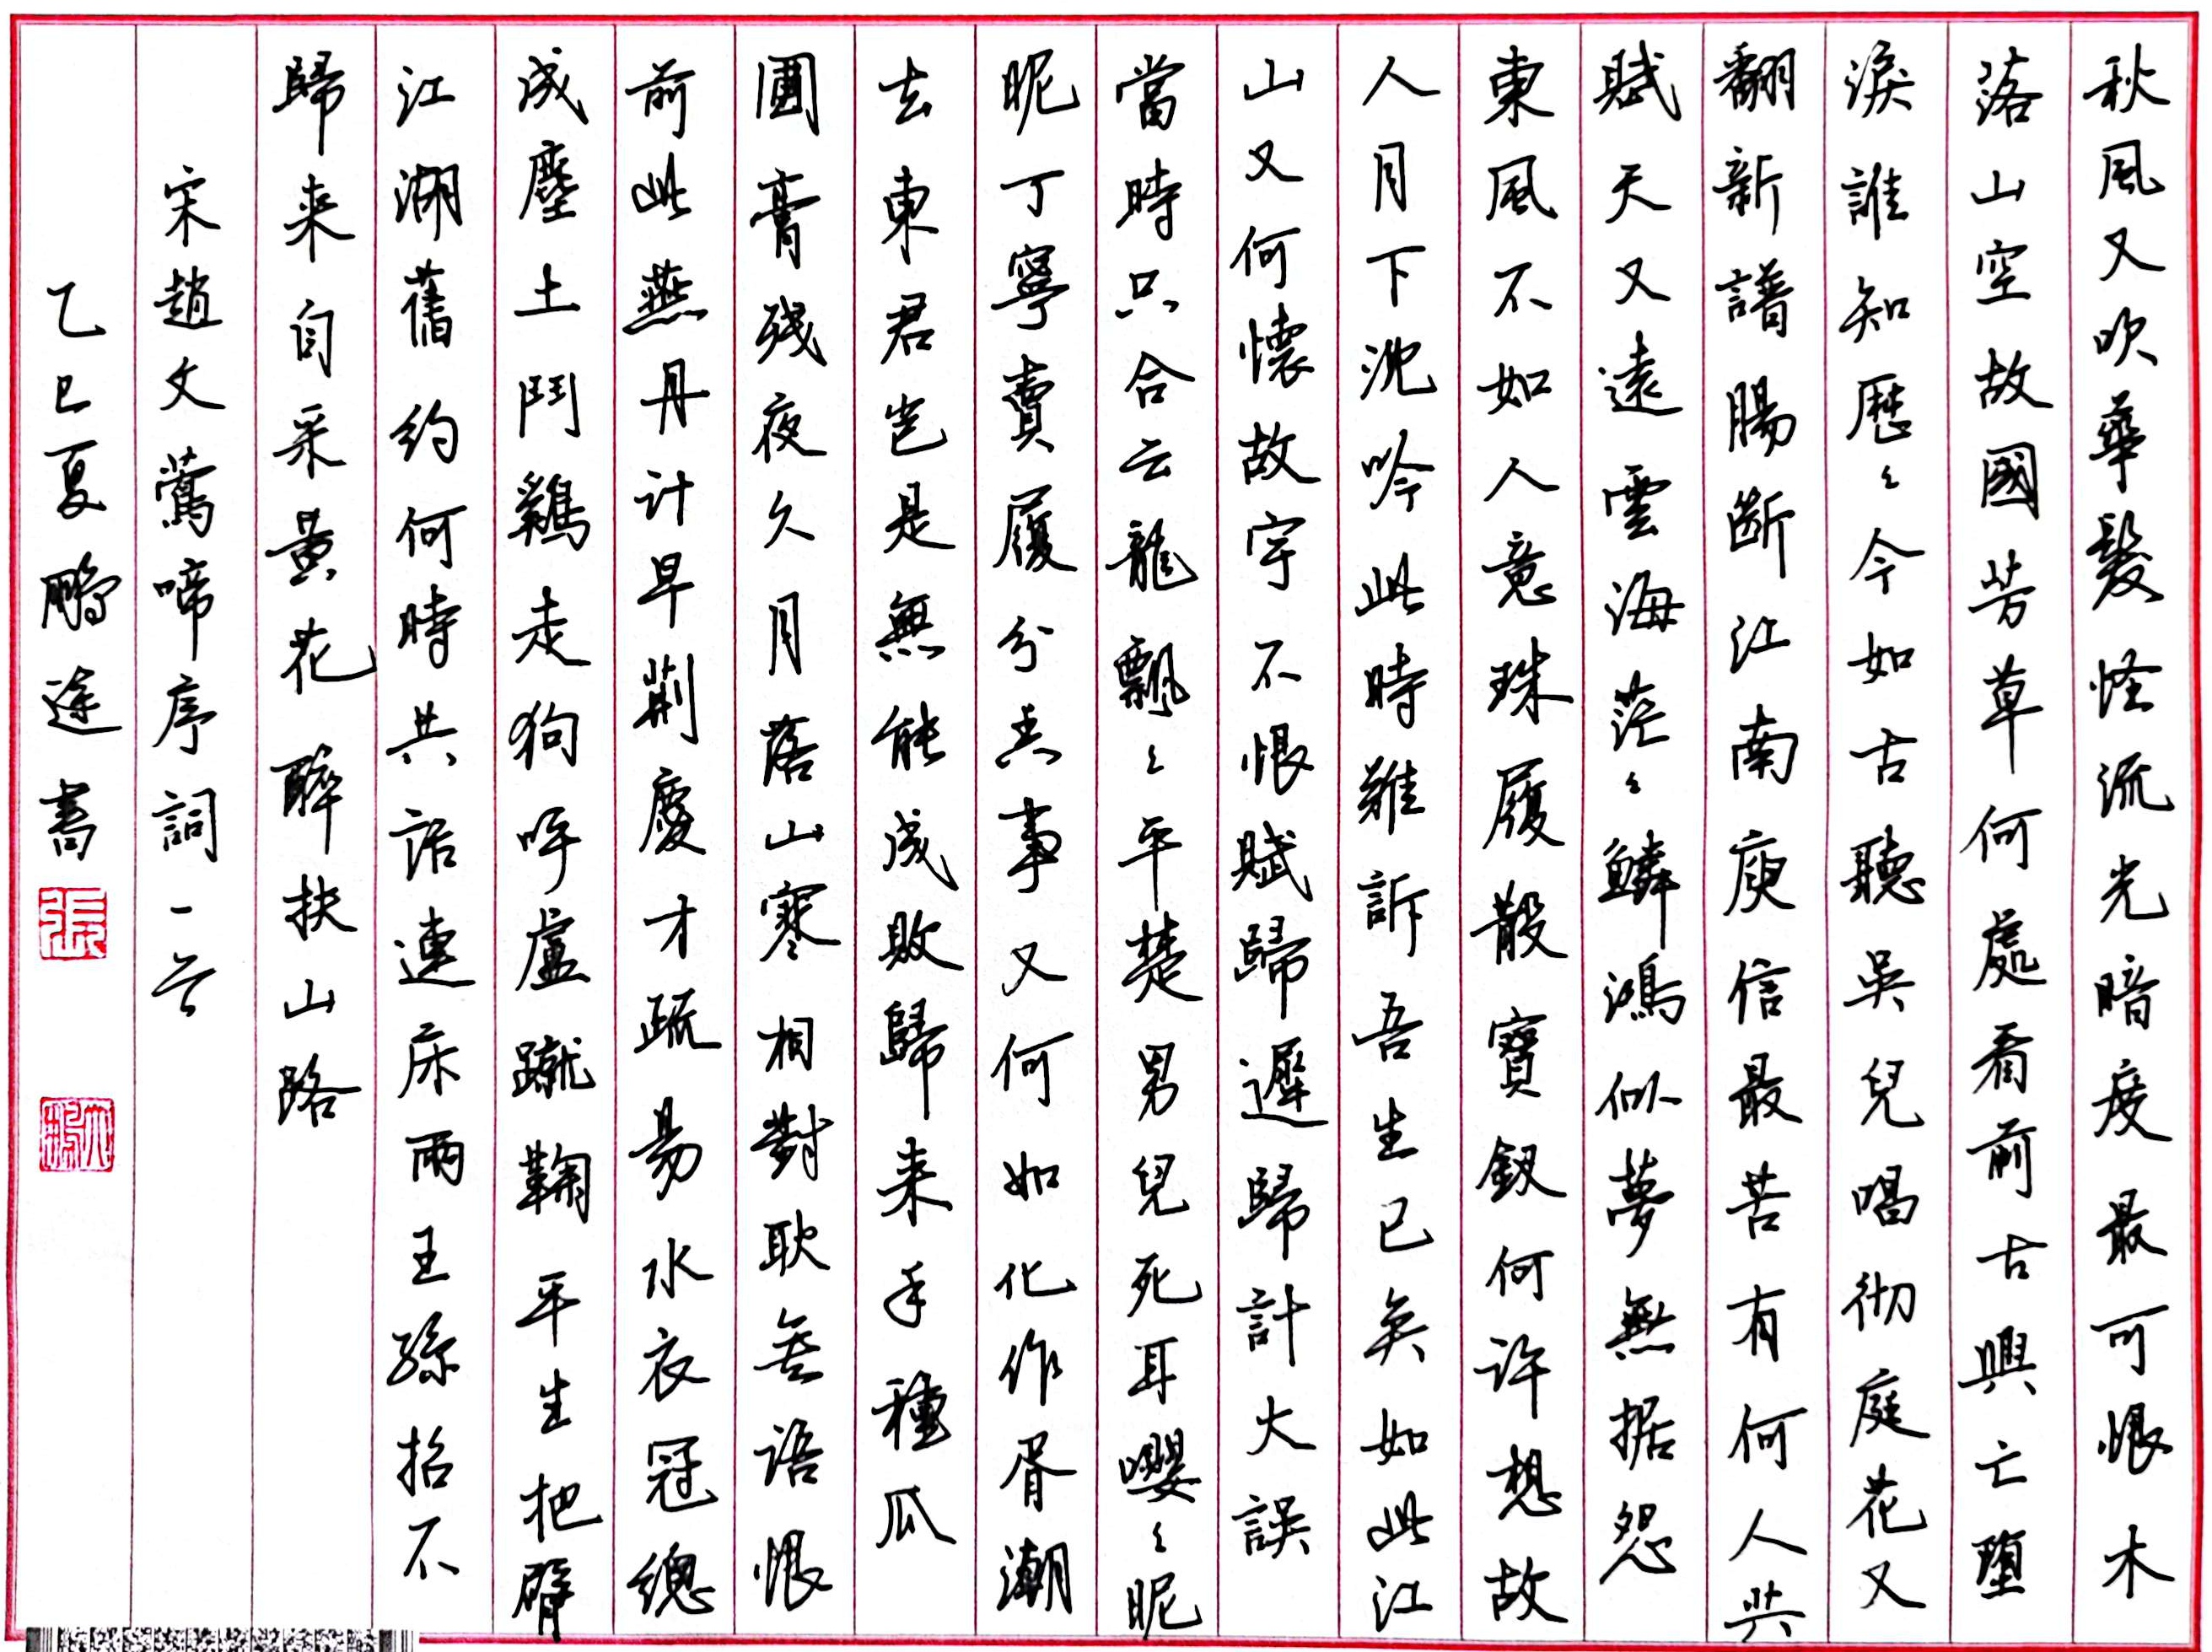 秋風又吹華髮怪流光暗度最可恨木
落山空故國芳草何處看前古興亡墮
淚誰知歷〻今如古聽吳兒唱徹庭花又
翻新譜腸斷江南庾信最苦有何人共
賦天又遠雲海茫〻鱗鴻似夢無据怨
東風不如人意珠履散寶釵何許想故
人月下沈吟此時難訴吾生已矣如此江
山又何懷故宇不恨賦歸遲歸計大誤
當時只合云龍飄〻平楚男兒死耳嚶〻昵
昵丁寧賣履分香事又何如化作胥潮
去東君豈是無能成敗歸来手種瓜
圃膏殘夜久月落山寒相對耿無語恨
前此燕丹計早荆慶才疏易水衣冠總
成塵土鬥鷄走狗呼盧蹴鞠平生把臂
江湖舊約何時共話連床雨王孫招不
歸来自采黄花醉扶山路
宋趙文鶯啼序詞一首
乙巳夏鵬途書
張